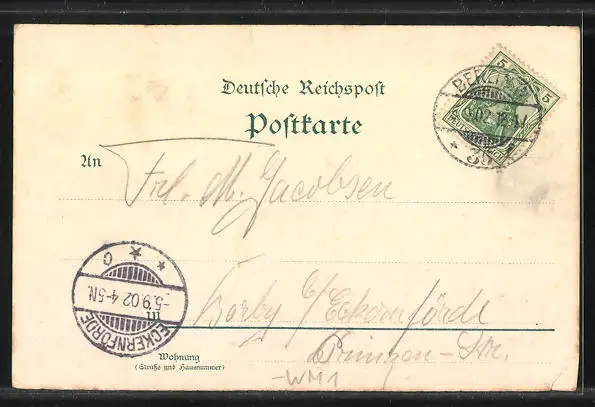 Deutsche Reichspost
Postkarte
5 5
BERLIN
An
Frl. M. Jacobsen
C
-5.9.02 4-5N.
ECKERNFÖRDE
in Borby b/Eckernförde
Wohnung
(Straße und Hausnummer)
Prinzen-Str.
-WM1